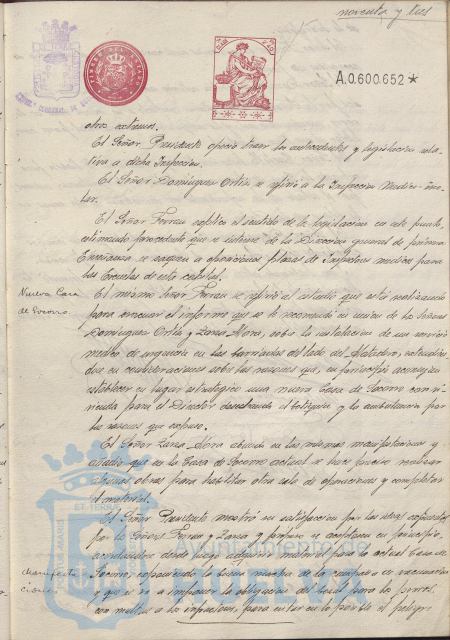 noventa y tres
A.0.600.652*
otros extremos.
El Señor Presidente ofreció traer los antecedentes y legislación rela-
tiva a dicha Inspección.
El Señor Domínguez Ortiz se refirió a la Inspección Médico-esco-
lar.
El Señor Terrau explica el sentido de la legislación en este punto,
estimando procedente que se interese de la Dirección general de primera
Enseñanza se saquen a oposiciones plazas de Inspectores médicos para
las Escuelas de esta capital.
Nueva Casa
de Socorro.
El mismo Señor Terrau se refirió al estudio que está realizando
para evacuar el informe que se le recomendó en unión de los Señores
Domínguez Ortiz y Lanza Mora, sobre la instalación de un servicio
médico de urgencia en las barriadas del lado del Matadero,
que en consideraciones sobre las razones que, en principio aconsejan
establecer en lugar estratégico una nueva Casa de Socorro con vi-
vienda para el Director y la ambulancia por
las razones que expuso.
El Señor Lanza Mora abunda en las mismas manifestaciones y
añadió que en la Casa de Socorro actual se hace preciso realizar
algunas obras para habilitar otra sala de operaciones y completar
el material.
El Señor Presidente mostró su satisfacción por las ideas
por los Señores Terrau y Lanza y propuso se aceptaran en principio,
acordándose desde luego adquirir material para la actual Casa de
Manifesta-
ciones
Socorro, la buena marcha de la campaña de vacunación
y que se va a imponer la obligación del bozal para los perros,
con multas a los infractores, para evitar en lo posible el peligro
Ayuntamiento de
HUELVA